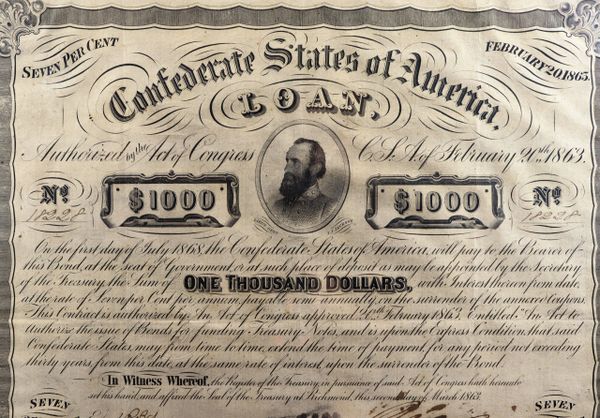 SEVEN PER CENT
FEBRUARY 20, 1863.
Confederate States of America.
LOAN,
Authorized by the Act of Congress C.S.A. of February 20th, 1863.
No. $1000 $1000 No.
18228 18228
On the first day of July 1868, the Confederate States of America, will pay to the Bearer of
this Bond, at the seat of Government or at such place of deposit as may be appointed by the Secretary
of the Treasury, the Sum of ONE THOUSAND DOLLARS, with Interest thereon from date,
at the rate of Seven per Cent per annum, payable semi-annually, on the surrender of the annexed Coupons.
This Contract is authorized by An Act of Congress approved 20th February 1863, Entitled: "An Act to
Authorize the issue of Bonds for funding Treasury Notes, and is upon the Express Condition, that said
Confederate States, may from time to time, extend the time of payment for any period not exceeding
thirty years, from this date, at the same rate of interest, upon the surrender of the Bond.
In Witness Whereof, the Register of the Treasury, in pursuance of said Act of Congress hath hereunto
set his hand, and affixed the Seal of the Treasury at Richmond, this second day of March 1863.
SEVEN SEVEN